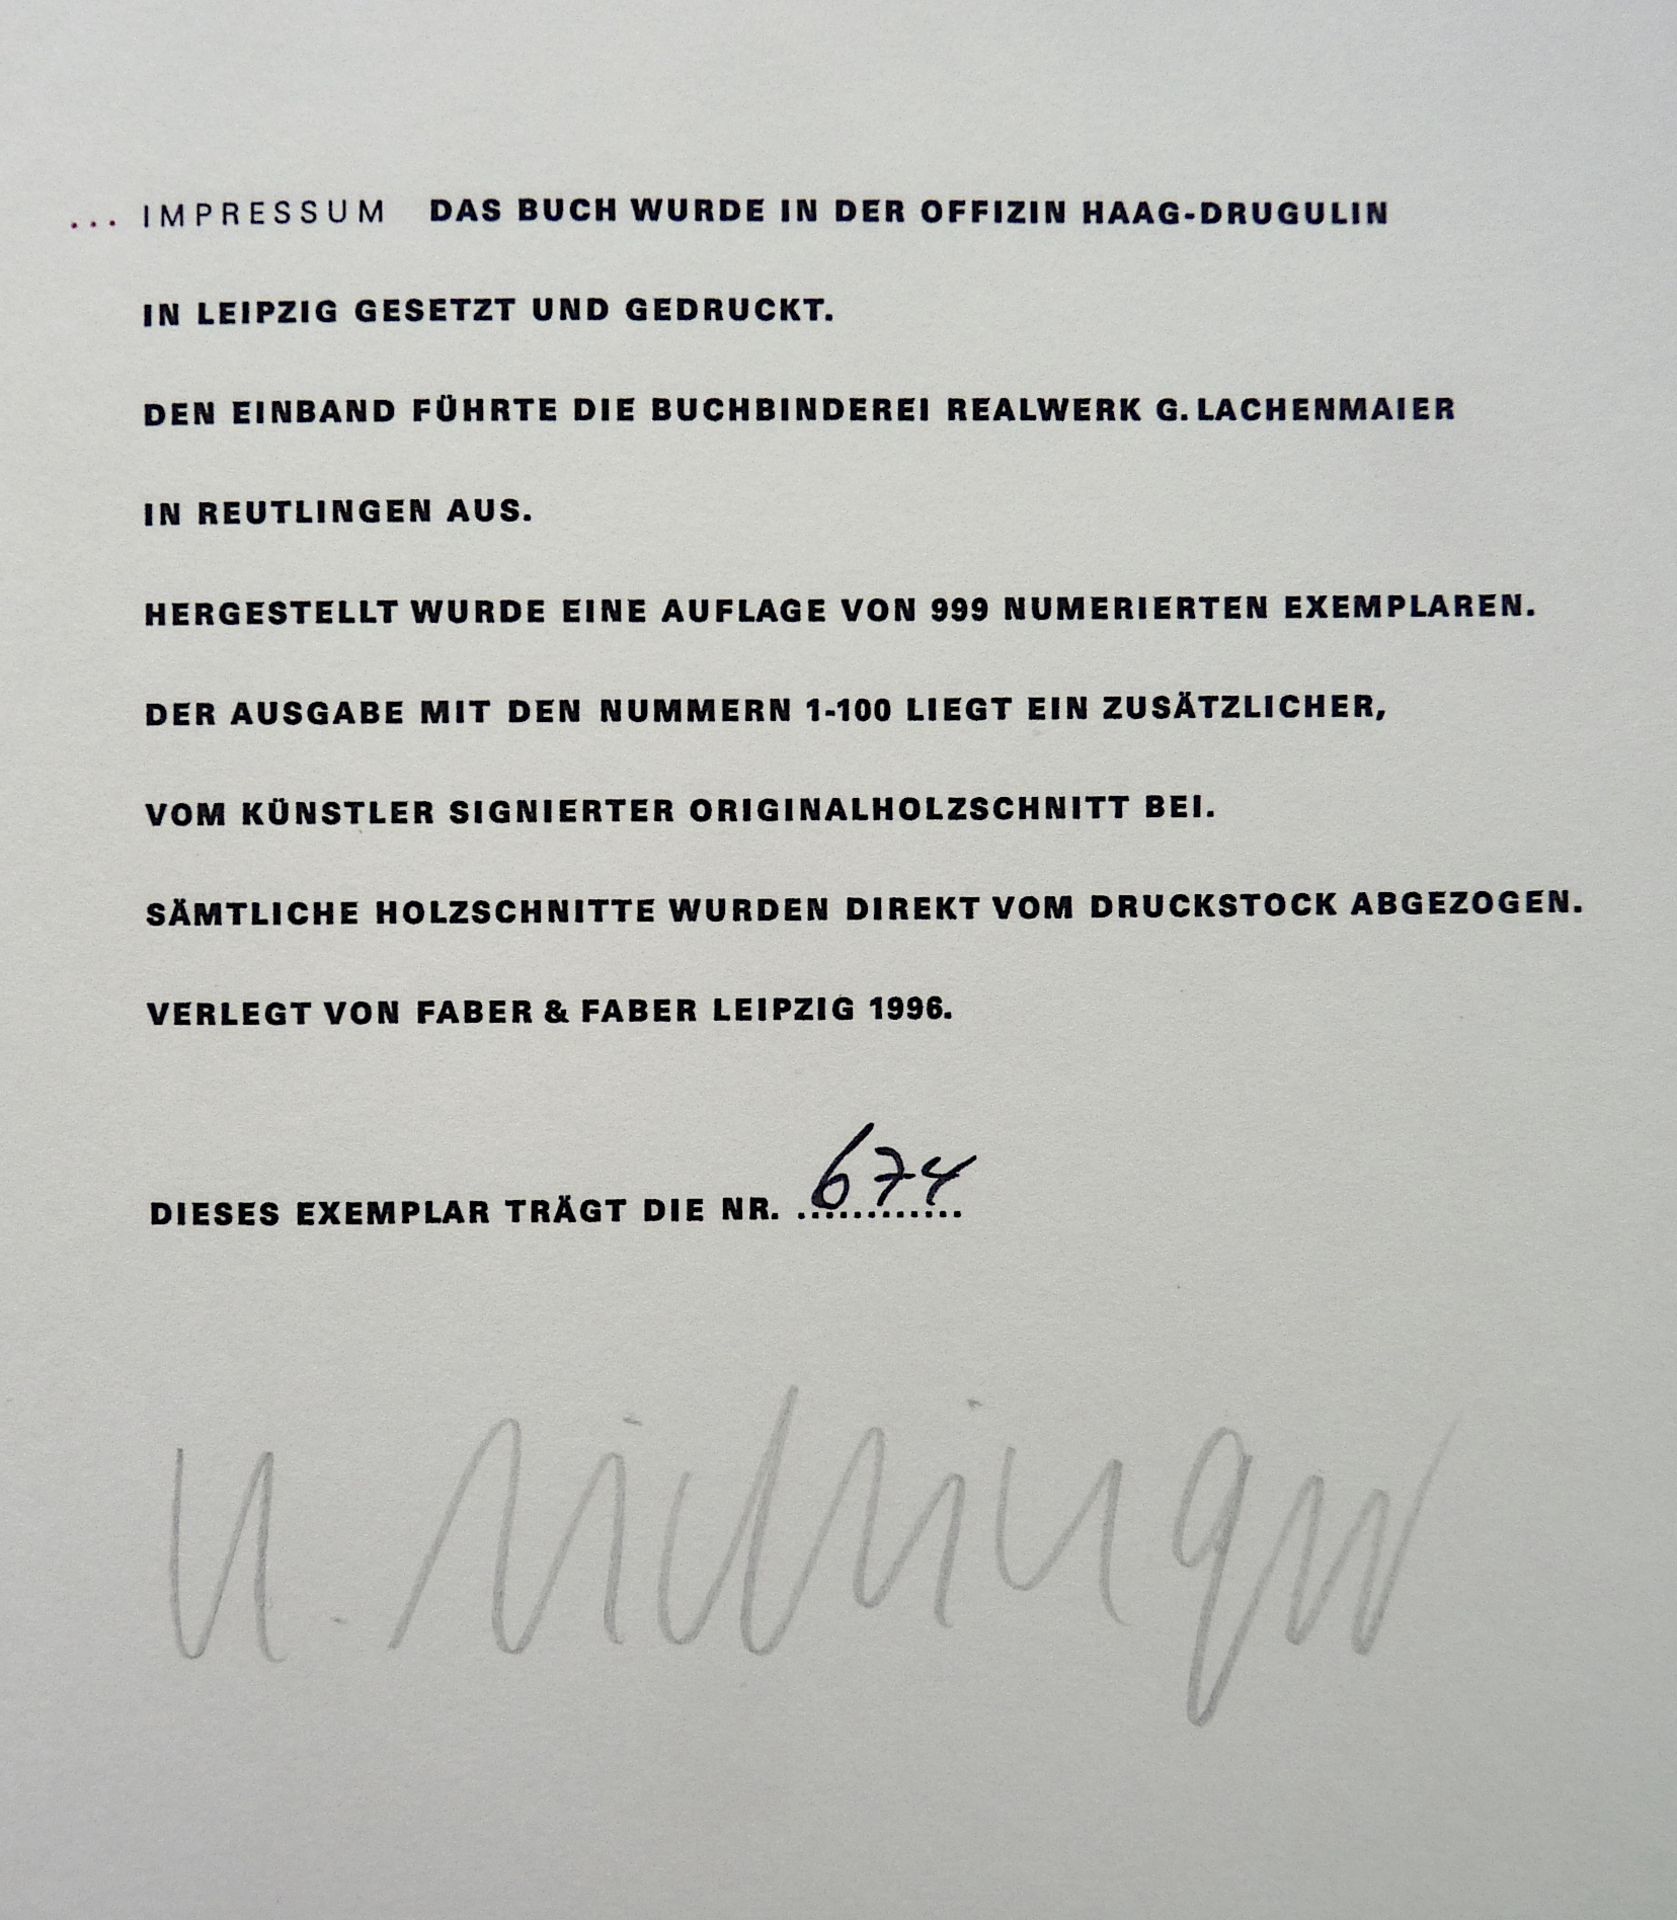 ... IMPRESSUM DAS BUCH WURDE IN DER OFFIZIN HAAG-DRUGULIN
IN LEIPZIG GESETZT UND GEDRUCKT.
DEN EINBAND FÜHRTE DIE BUCHBINDEREI REALWERK G. LACHENMAIER
IN REUTLINGEN AUS.
HERGESTELLT WURDE EINE AUFLAGE VON 999 NUMERIERTEN EXEMPLAREN.
DER AUSGABE MIT DEN NUMMERN 1-100 LIEGT EIN ZUSÄTZLICHER,
VOM KÜNSTLER SIGNIERTER ORIGINALHOLZSCHNITT BEI.
SÄMTLICHE HOLZSCHNITTE WURDEN DIREKT VOM DRUCKSTOCK ABGEZOGEN.
VERLEGT VON FABER & FABER LEIPZIG 1996.
DIESES EXEMPLAR TRÄGT DIE NR. 674